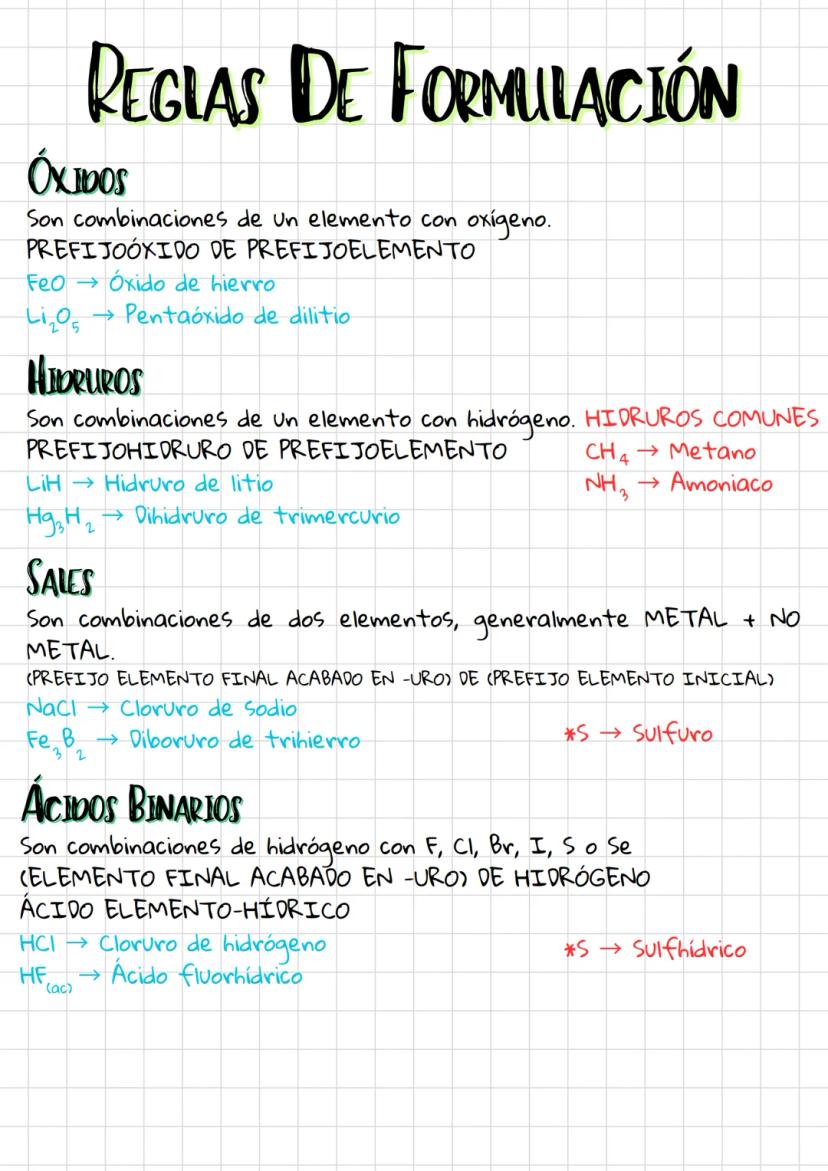 REGLAS DE FORMULACIÓN
ÓXIDOS
Son combinaciones de un elemento con oxígeno.
PREFIJOÓXIDO DE PREFIJOELEMENTO
FeO → Óxido de hierro
Li₂O₅ → Pentaóxido de dilitio
HIDRUROS
Son combinaciones de un elemento con hidrógeno.
PREFIJOHIDRURO DE PREFIJOELEMENTO
LiH → Hidruro de litio
Hg₃H₂ → Dihidruro de trimercurio
HIDRUROS COMUNES
CH₄ → Metano
NH₃ → Amoniaco
SALES
Son combinaciones de dos elementos, generalmente METAL + NO
METAL.
(PREFIJO ELEMENTO FINAL ACABADO EN -URO) DE (PREFIJO ELEMENTO INICIAL)
NaCl → Cloruro de sodio
Fe₃B₂ → Diboruro de trihierro
*S → Sulfuro
ÁCIDOS BINARIOS
Son combinaciones de hidrógeno con F, Cl, Br, I, S o Se
(ELEMENTO FINAL ACABADO EN -URO) DE HIDRÓGENO
ÁCIDO ELEMENTO-HÍDRICO
HCl → Cloruro de hidrógeno
HF(ac) → Ácido fluorhídrico
*S → Sulfhídrico